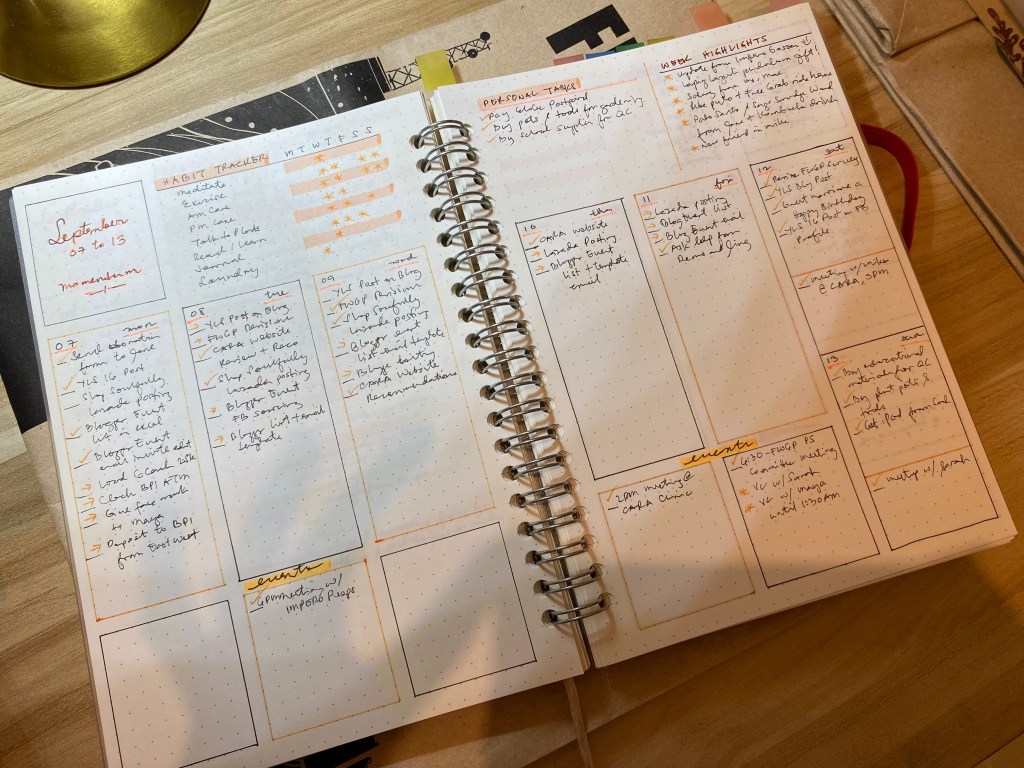 September
07 to 13
momentum
HABIT TRACKER M T W T F S S
meditate
Exercise
AM Care
PM Care
Talk to Plants
Read / Learn
Journal
Laundry
07 mon
Send
form to Jane
YLS IG Post
Slay Soulfully
Lazada posting
Blogger Event
list on excel
Blogger Event
email invite edit
Load GCash 25k
Check BPI ATM
Give face mask
to maya
Deposit to BPI
from East West
08 tue
YLS Post on Blog
FWGP Revisions
CARA website
Review + Reco
Slay Soulfully
Lazada posting
Blogger Event
FB
Blogger list + email
template
09 wed
YLS Post on Blog
FWGP Revisions
Slay Soulfully
Lazada posting
Blogger Event
list email template
Blogger
CARA website
Recommendations
events
4PM meeting w/
IMPERO Peeps
PERSONAL TASKS
Pay Globe Postpaid
Buy pots & tools for gardening
Buy school supplies for QC
WEEK HIGHLIGHTS
Update from
from Jane +
New friend in mike
10 thu
CARA website
Lazada Posting
Blogger Event
list + template
email
11 fri
Lazada posting
Blog Event list
Blog Event email
Ask help from
Rema and Jing
12 sat
Revise FWGP Survey
YLS Blog Post
a
Happy Birthday
YLS Post on FB
Profile
meeting w/
@ CARA, 3PM
13 sun
Buy educational
materials for QC
Buy plant pots &
tools
Get iPad from
meetup w/ Sarah
events
2PM meeting @
CARA Clinic
4:30 - FWGP PS
Committee meeting
VC w/ Sarah
VC w/ maya
until 1:30AM